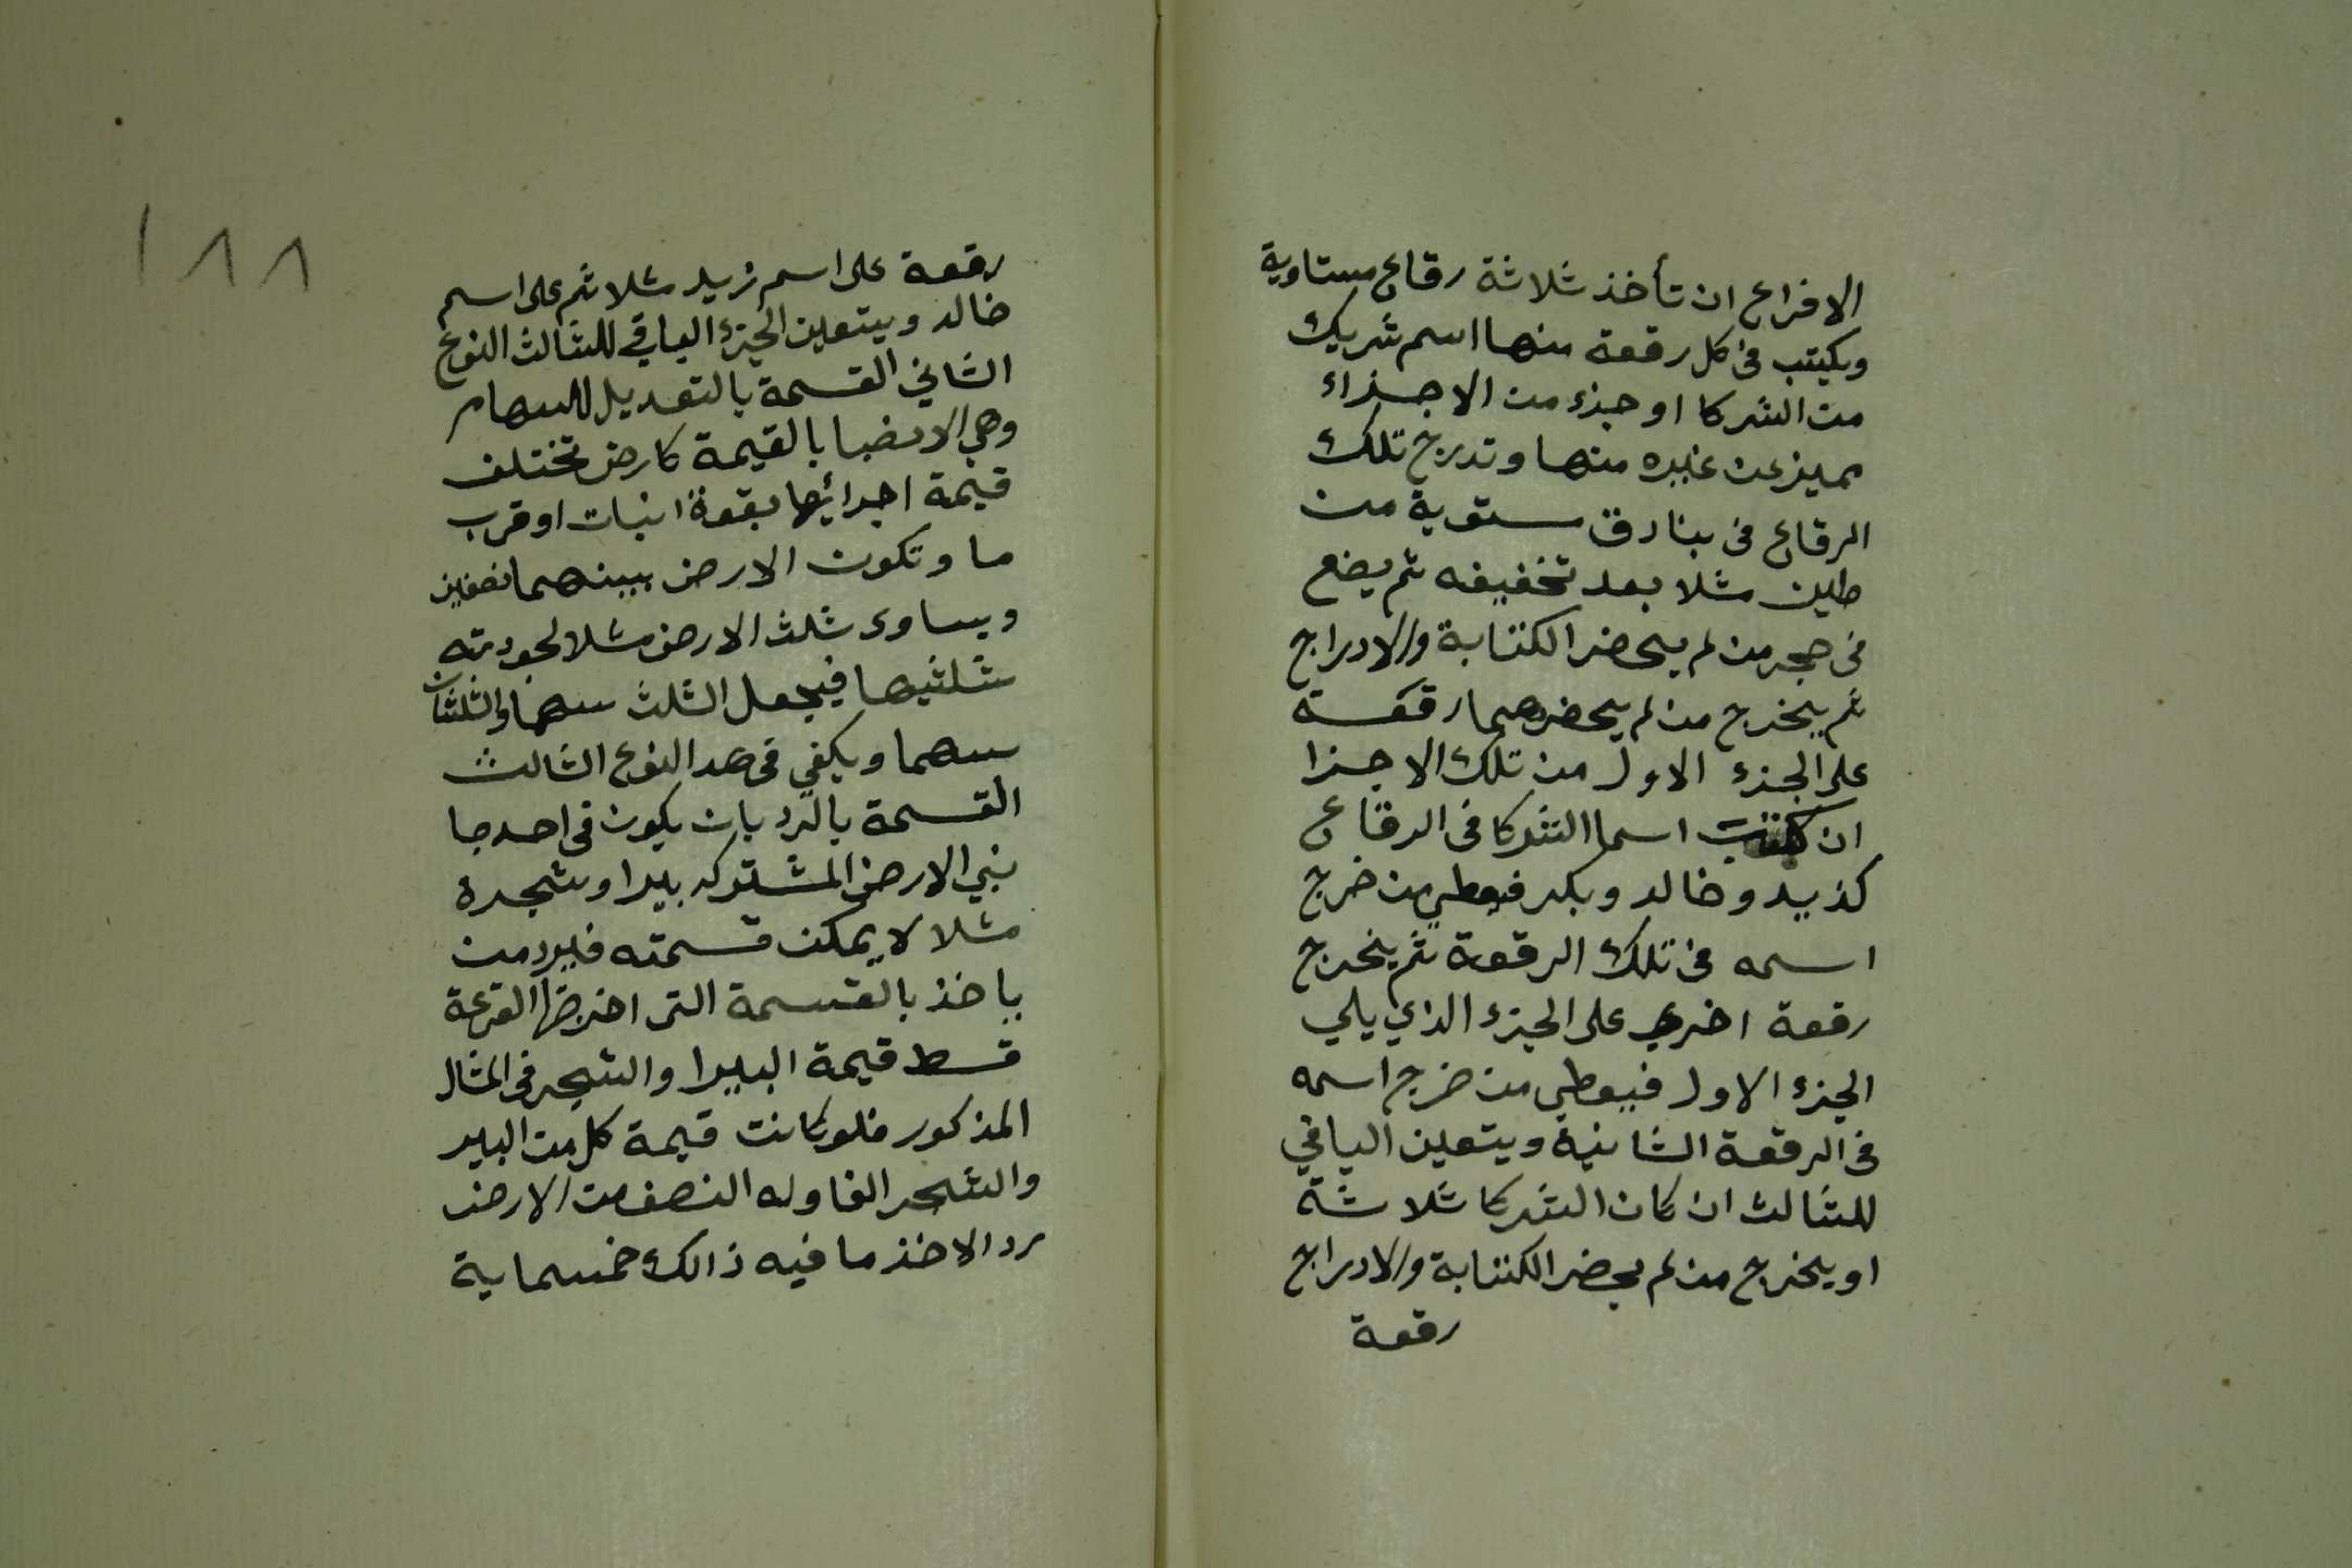 الافراع ان تأخذ ثلاثة رقاع مستاوية
ويكتب فى كل رقعة منها اسم شريك
من الشركا او جزء من الاجزاء
مميز عن غيره منها وتدرج تلك
الرقاع فى بنادق ستوية من
طين مثلا بعد تخفيفه ثم يضع
فى حجر من لم يحضر الكتابة والادراج
ثم يخرج من لم يحضرهما رقعة
على الجزء الاول من تلك الاجزا
ان كتبت اسما الشركا فى الرقاع
كزيد وخالد وبكر فيعطي من خرج
اسمه فى تلك الرقعة ثم يخرج
رقعة اخري على الجزء الذي يلي
الجزء الاول فيعطى من خرج اسمه
فى الرقعة الثانية ويتعين الباقي
للثالث ان كان الشركا ثلاثة
او يخرج من لم يحضر الكتابة والادراج
رقعة
١٨٨
رقعة على اسم زيد مثلا ثم على اسم
خالد ويتعين الجزء الباقي للثالث النوع
الثاني القسمة بالتعديل للسهام
وهي الانضبا بالقيمة كارض تختلف
قيمة اجرائها بقوة انبات او قرب
ما وتكون الارض بينهما نصفين
ويساوى ثلث الارض مثلا لجودته
ثلثيها فيجعل الثلث سهما والثلثان
سهما ويكفي فى هد النوع الثالث
القسمة بالرد بان يكون فى احد جا
نبي الارض المشتركه بيرا وشجرة
مثلا لا يمكن قسمته فيرد من
ياخذ بالقسمة التى اخرجتها القرعة
قسط قيمة البيرا والشجر فى المثال
المذكور فلو كانت قيمة كل من البير
والشجر الفا وله النصف من الارض
رد الاخذ ما فيه ذالك خمسماية